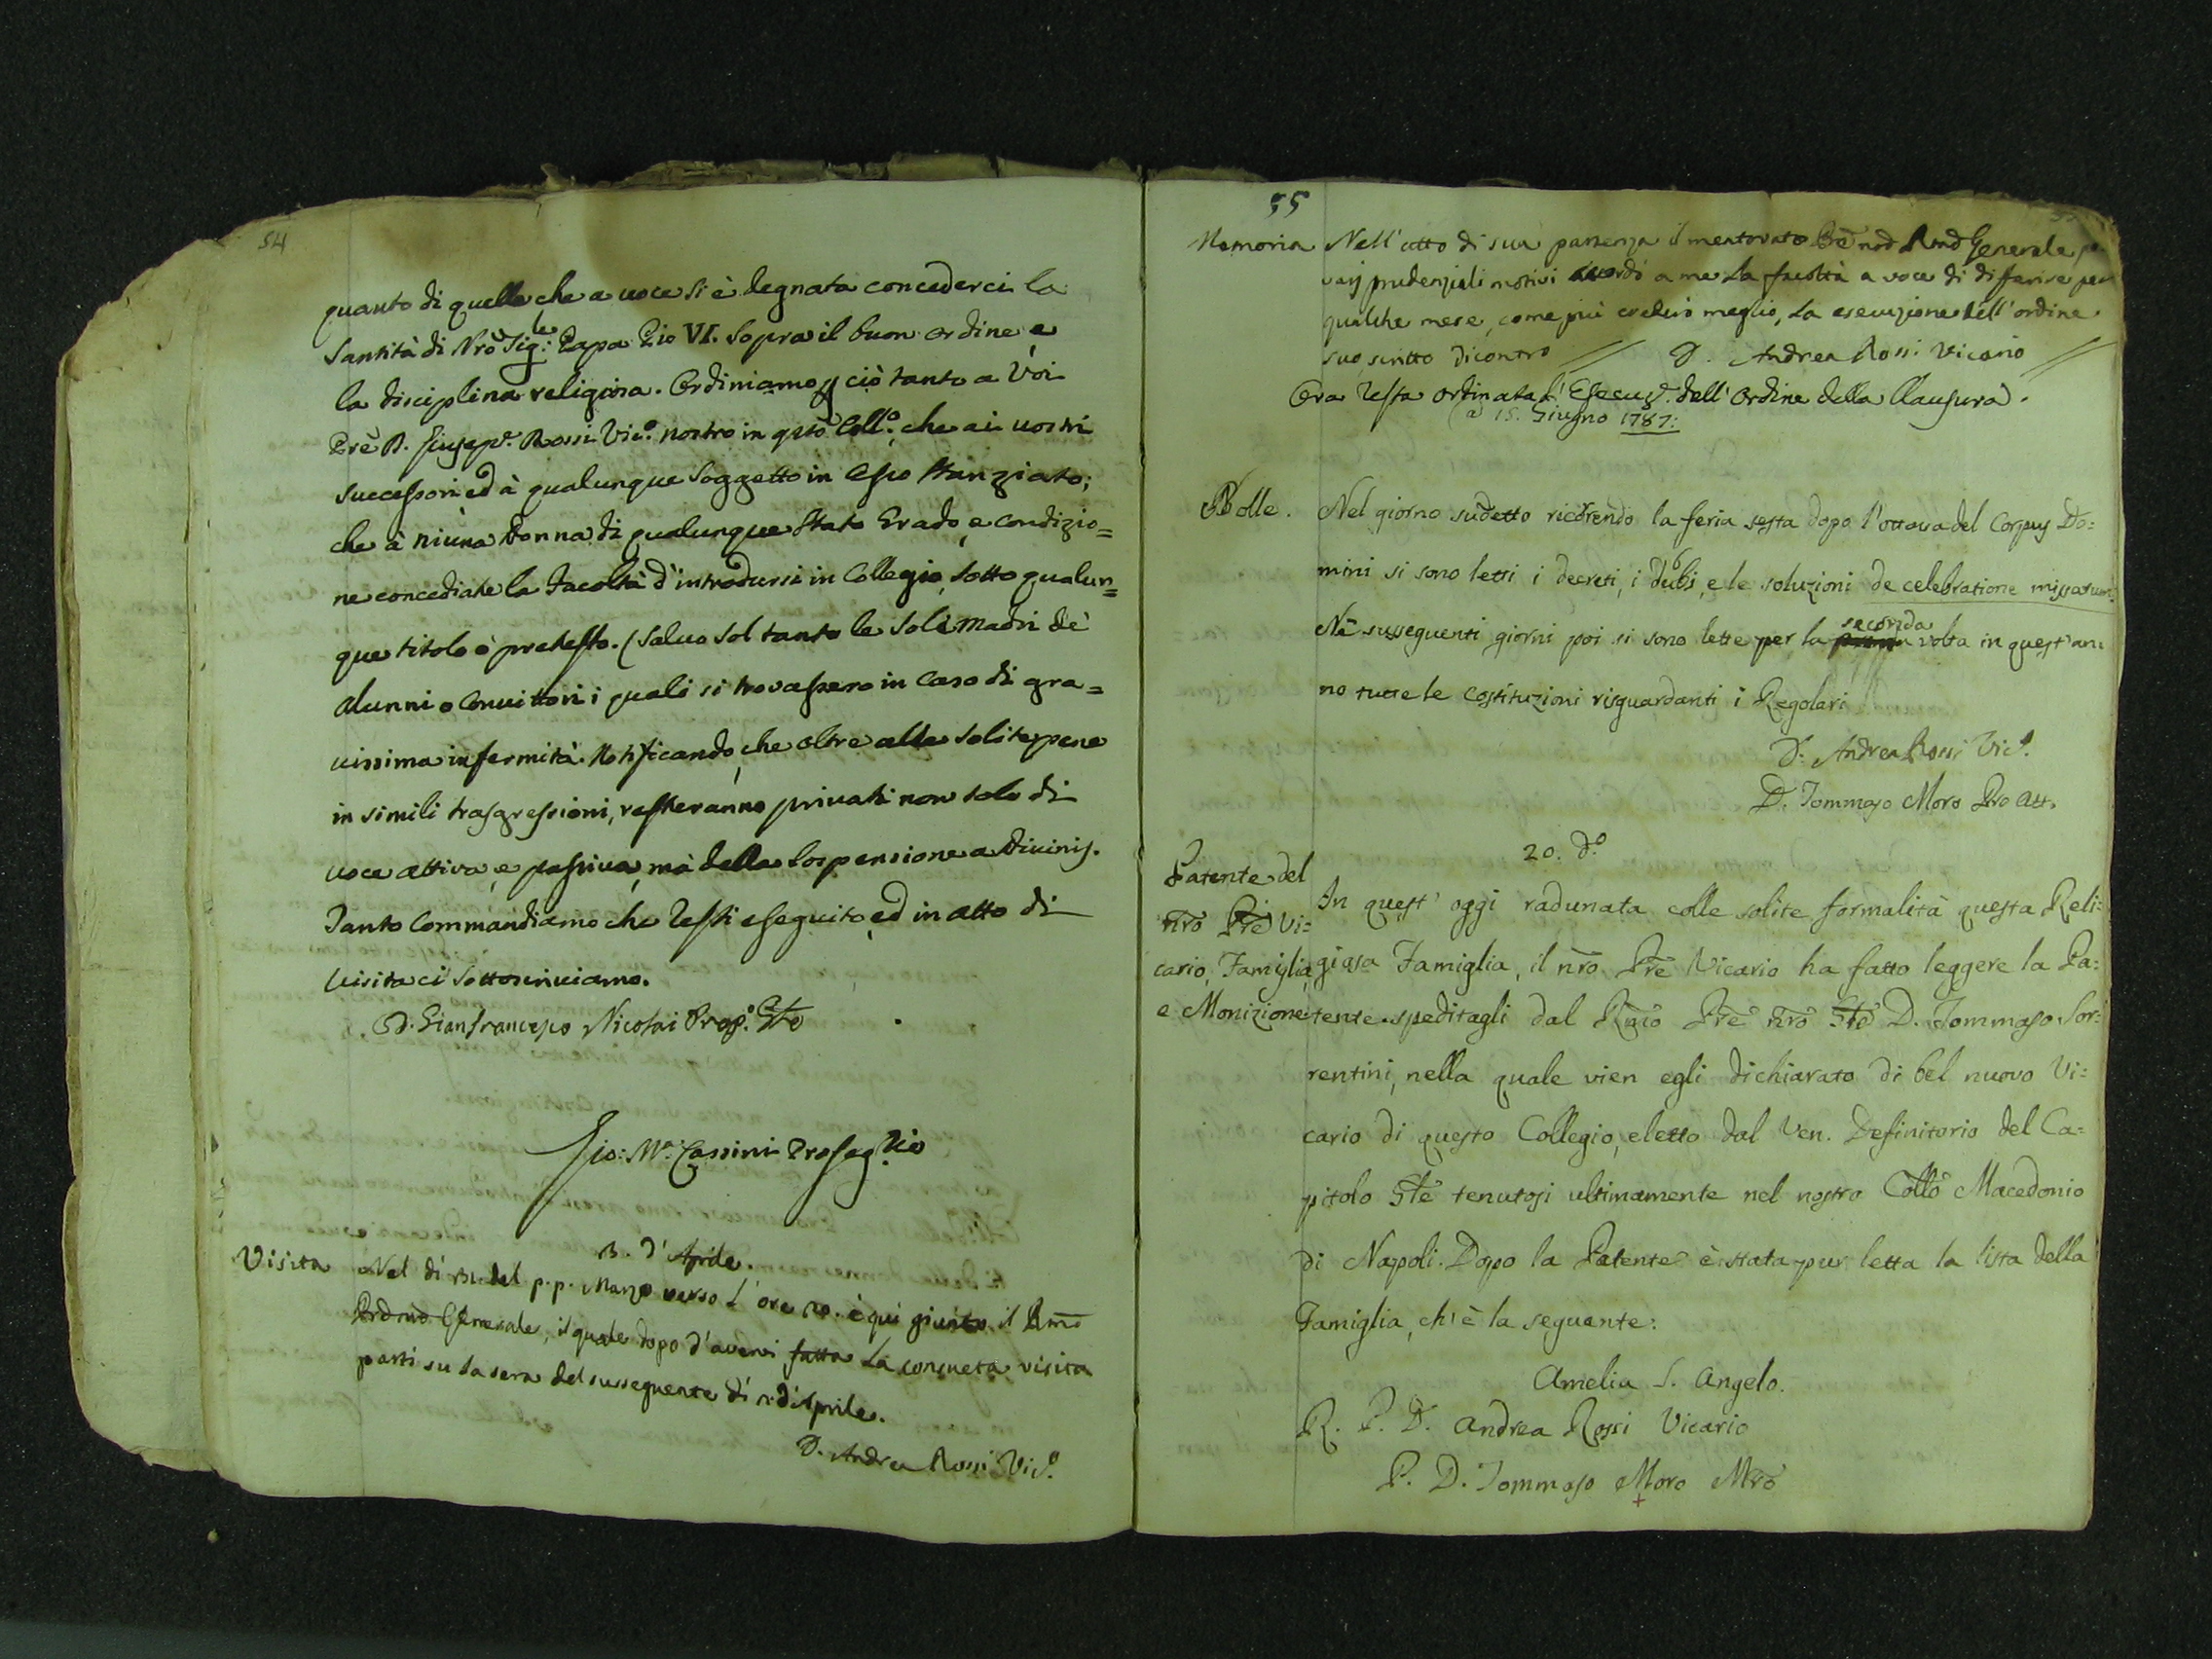 54
quanto di quelle che a uoce si è degnata concederci la
Santità di Nrõ Sig.re Papa Pio VI. sopra il buon ordine, e
la disciplina religiosa. Ordiniamo ciò tanto a Voi
Prẽ D. Rossi Vic.o nostro in qsto Coll.o, che ai uostri
successori, ed à qualunque soggetto in esso stanziato;
che à niuna Donna di qualunque stato Grado, e condizio=
ne concediate la Facoltà d'introdursi in Collegio, sotto qualun=
que titolo ò pretesto. (Saluo sol tanto le sole Madri de'
alunni o Conuittori i quali si trouassero in caso di gra=
uissima infermità. Notificando, che oltre alle solite pene
in simili trasgressioni, resteranno priuati non solo di
uoce attiua, e passiua, mà della sospensione a Diuinis.
Tanto commandiamo che resti eseguito, ed in atto di
uisita ci sottoscriuiamo.
D. Gianfrancesco Nicolai Prep.o Gñle
Gio: M.a Cassini Proseg.rio
3. d'Aprile.
Visita Nel dì 31. del p.p. Marzo verso l'ore 20. è qui giunto il Rmõ
Prẽ nrõ Generale, il quale dopo d'avervi fatta la consueta visita
partì su la sera del susseguente dì 2. d'Aprile.
D. Andrea Rossi Vic.o
55
Memoria Nell'atto di sua partenza il mentovato Prẽ nrõ Rmõ Generale
varj prudenziali motivi accordò a me la facoltà a voce di differire per
qualche mese, come più crederò meglio, la esecuzione dell'ordine
suo scritto dicontro // D. Andrea Rossi Vicario //
Ora resta ordinata l'Esecuz.e dell'Ordine della Clausura.
a 15. Giugno 1787:
Bolle. Nel giorno sudetto ricorrendo la feria sesta dopo l'ottava del Corpus Do=
mini si sono letti i decreti, i dubbi, e le soluzioni de celebratione missarum.
Ne' susseguenti giorni poi si sono lette per la seconda volta in quest'an=
no tutte le costituzioni risguardanti i Regolari
D. Andrea Rossi Vic.o
D. Tommaso Moro Pro Att.
20. d.o
Patente del
nrõ Prẽ Vi=
cario, Famiglia,
e Monizione
In quest'oggi radunata colle solite formalità questa Reli=
giosa Famiglia, il nrõ Prẽ Vicario ha fatto leggere la Pa=
tente speditagli dal Rmõ Prẽ nrõ Gñle D. Tommaso Sor=
rentini, nella quale vien egli dichiarato di bel nuovo Vi=
cario di questo Collegio, eletto dal Ven. Definitorio del Ca=
pitolo Gñle tenutosi ultimamente nel nostro Collõ Macedonio
di Napoli. Dopo la Patente è stata pur letta la lista della
Famiglia, ch'è la seguente:
Amelia S. Angelo.
R. P. D. Andrea Rossi Vicario
P. D. Tommaso Moro Mrõ